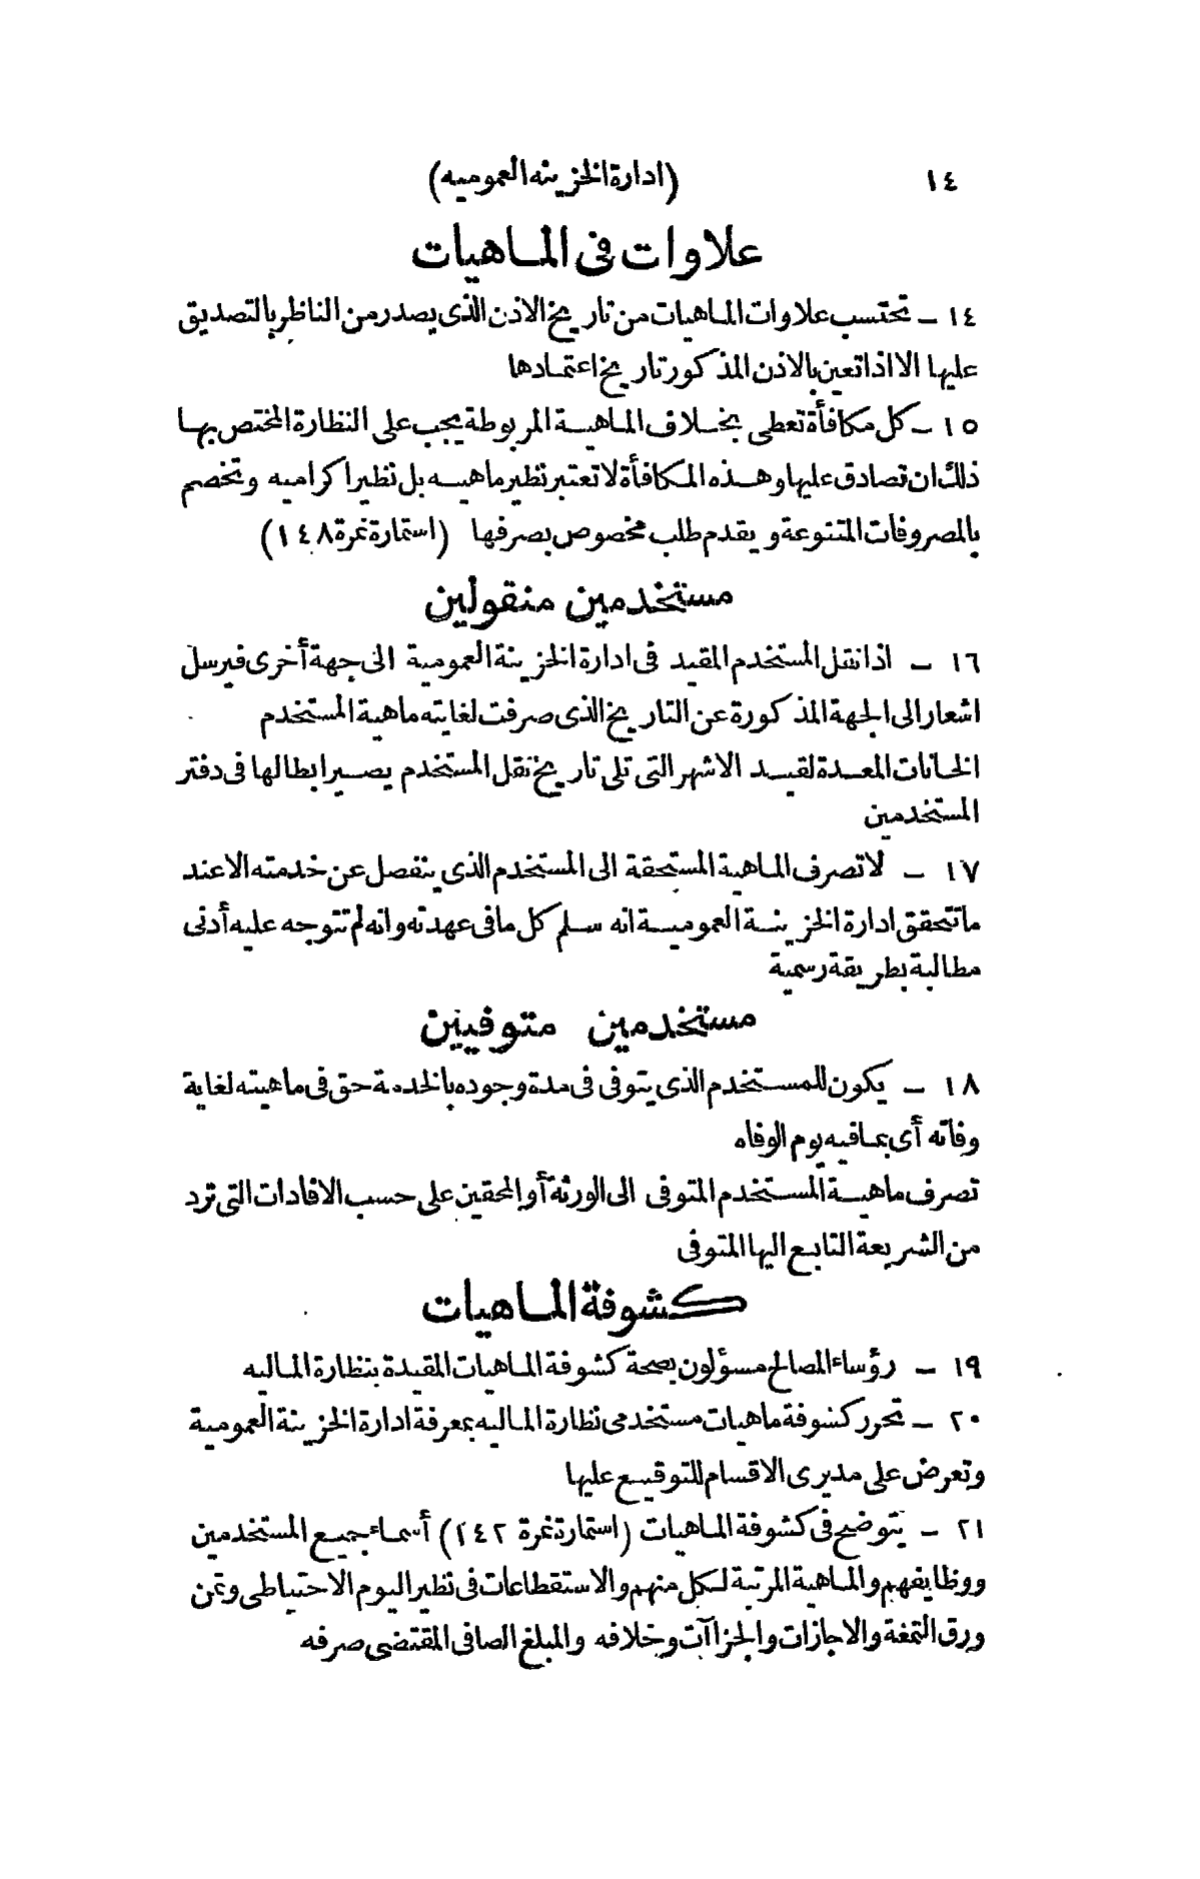 ١٤ (ادارة الخزينه العموميه)
علاوات فى الماهيات
١٤ – تحتسب علاوات الماهيات من تاريخ الاذن الذى يصدر من الناظر بالتصديق
عليها الا اذا تعين بالاذن المذكور تاريخ اعتمادها
١٥ – كل مكافأة تعطى بخلاف الماهية المربوطة يجب على النظارة المختص بها
ذلك ان تصادق عليها وهذه المكافأة لا تعتبر نظير ماهيه بل نظير اكراميه وتخصم
بالمصروفات المتنوعة ويقدم طلب مخصوص بصرفها (استمارة نمرة ١٤٨)
مستخدمين منقولين
١٦ – اذا نقل المستخدم المقيد فى ادارة الخزينة العمومية الى جهة أخرى فيرسل
اشعار الى الجهة المذكورة عن التاريخ الذى صرفت لغايته ماهية المستخدم
الخانات المعدة لقيد الاشهر التى تلى تاريخ نقل المستخدم يصير ابطالها فى دفتر
المستخدمين
١٧ – لا تصرف الماهية المستحقة الى المستخدم الذى ينفصل عن خدمته الا عند
ما تتحقق ادارة الخزينة العمومية انه سلم كل ما فى عهدته وانه لم تتوجه عليه أدنى
مطالبة بطريقة رسمية
مستخدمين متوفيين
١٨ – يكون للمستخدم الذى يتوفى فى مدة وجوده بالخدمة حق فى ماهيته لغاية
وفاته أى بما فيه يوم الوفاه
تصرف ماهية المستخدم المتوفى الى الورثة أو المحقين على حسب الافادات التى ترد
من الشريعة التابع اليها المتوفى
كشوفة الماهيات
١٩ – رؤساء المصالح مسؤلون بصحة كشوفة الماهيات المقيدة بنظارة الماليه
٢٠ – تحرر كشوفة ماهيات مستخدمى نظارة الماليه بمعرفة ادارة الخزينة العمومية
وتعرض على مديرى الاقسام للتوقيع عليها
٢١ – يتوضح فى كشوفة الماهيات (استمارة نمرة ١٤٢) أسماء جميع المستخدمين
ووظايفهم والماهية المرتبة لكل منهم والاستقطاعات فى نظير اليوم الاحتياطى وثمن
ورق التمغة والاجازات والجزاآت وخلافه والمبلغ الصافى المقتضى صرفه